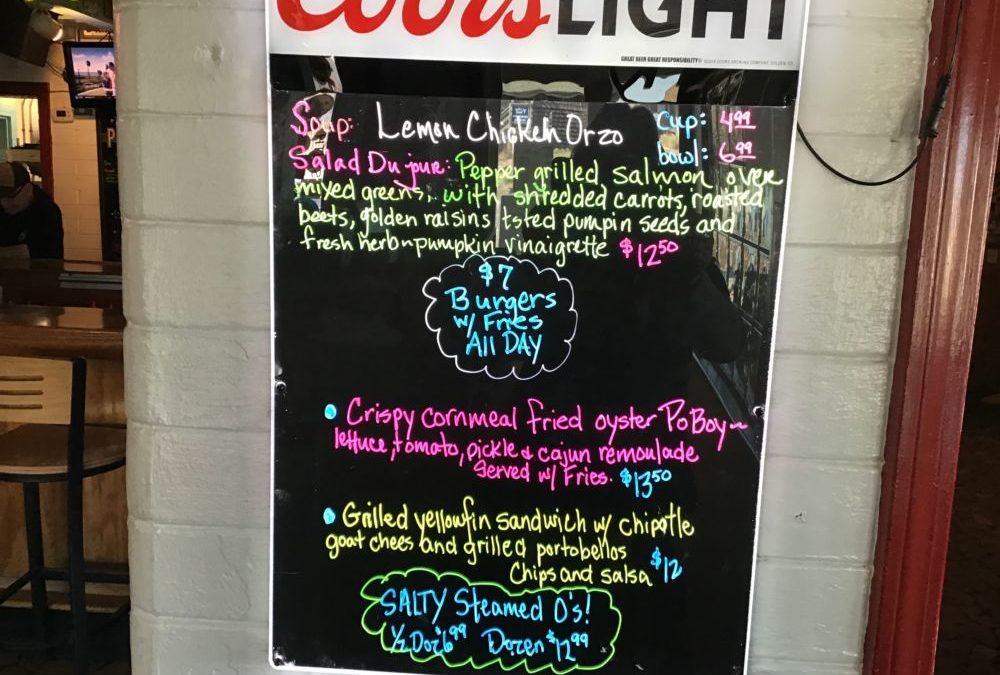 Coors LIGHT
GREAT BEER GREAT RESPONSIBILITY®
Soup: Lemon Chicken Orzo cup: 4.99
bowl: 6.99
Salad Du jour: Pepper grilled salmon over
mixed greens, with shredded carrots, roasted
beets, golden raisins tsted pumpin seeds and
fresh herb-pumpkin vinaigrette $12.50
$7
Burgers
w/ Fries
All DAY
Crispy cornmeal fried oyster PoBoy~
lettuce, tomato, pickle & cajun remoulade
Served w/ Fries. $13.50
Grilled yellowfin sandwich w/ chipotle
goat chees and grilled portobellos
Chips and salsa $12
SALTY Steamed O's!
1/2 Doz 6.99 Dozen $12.99